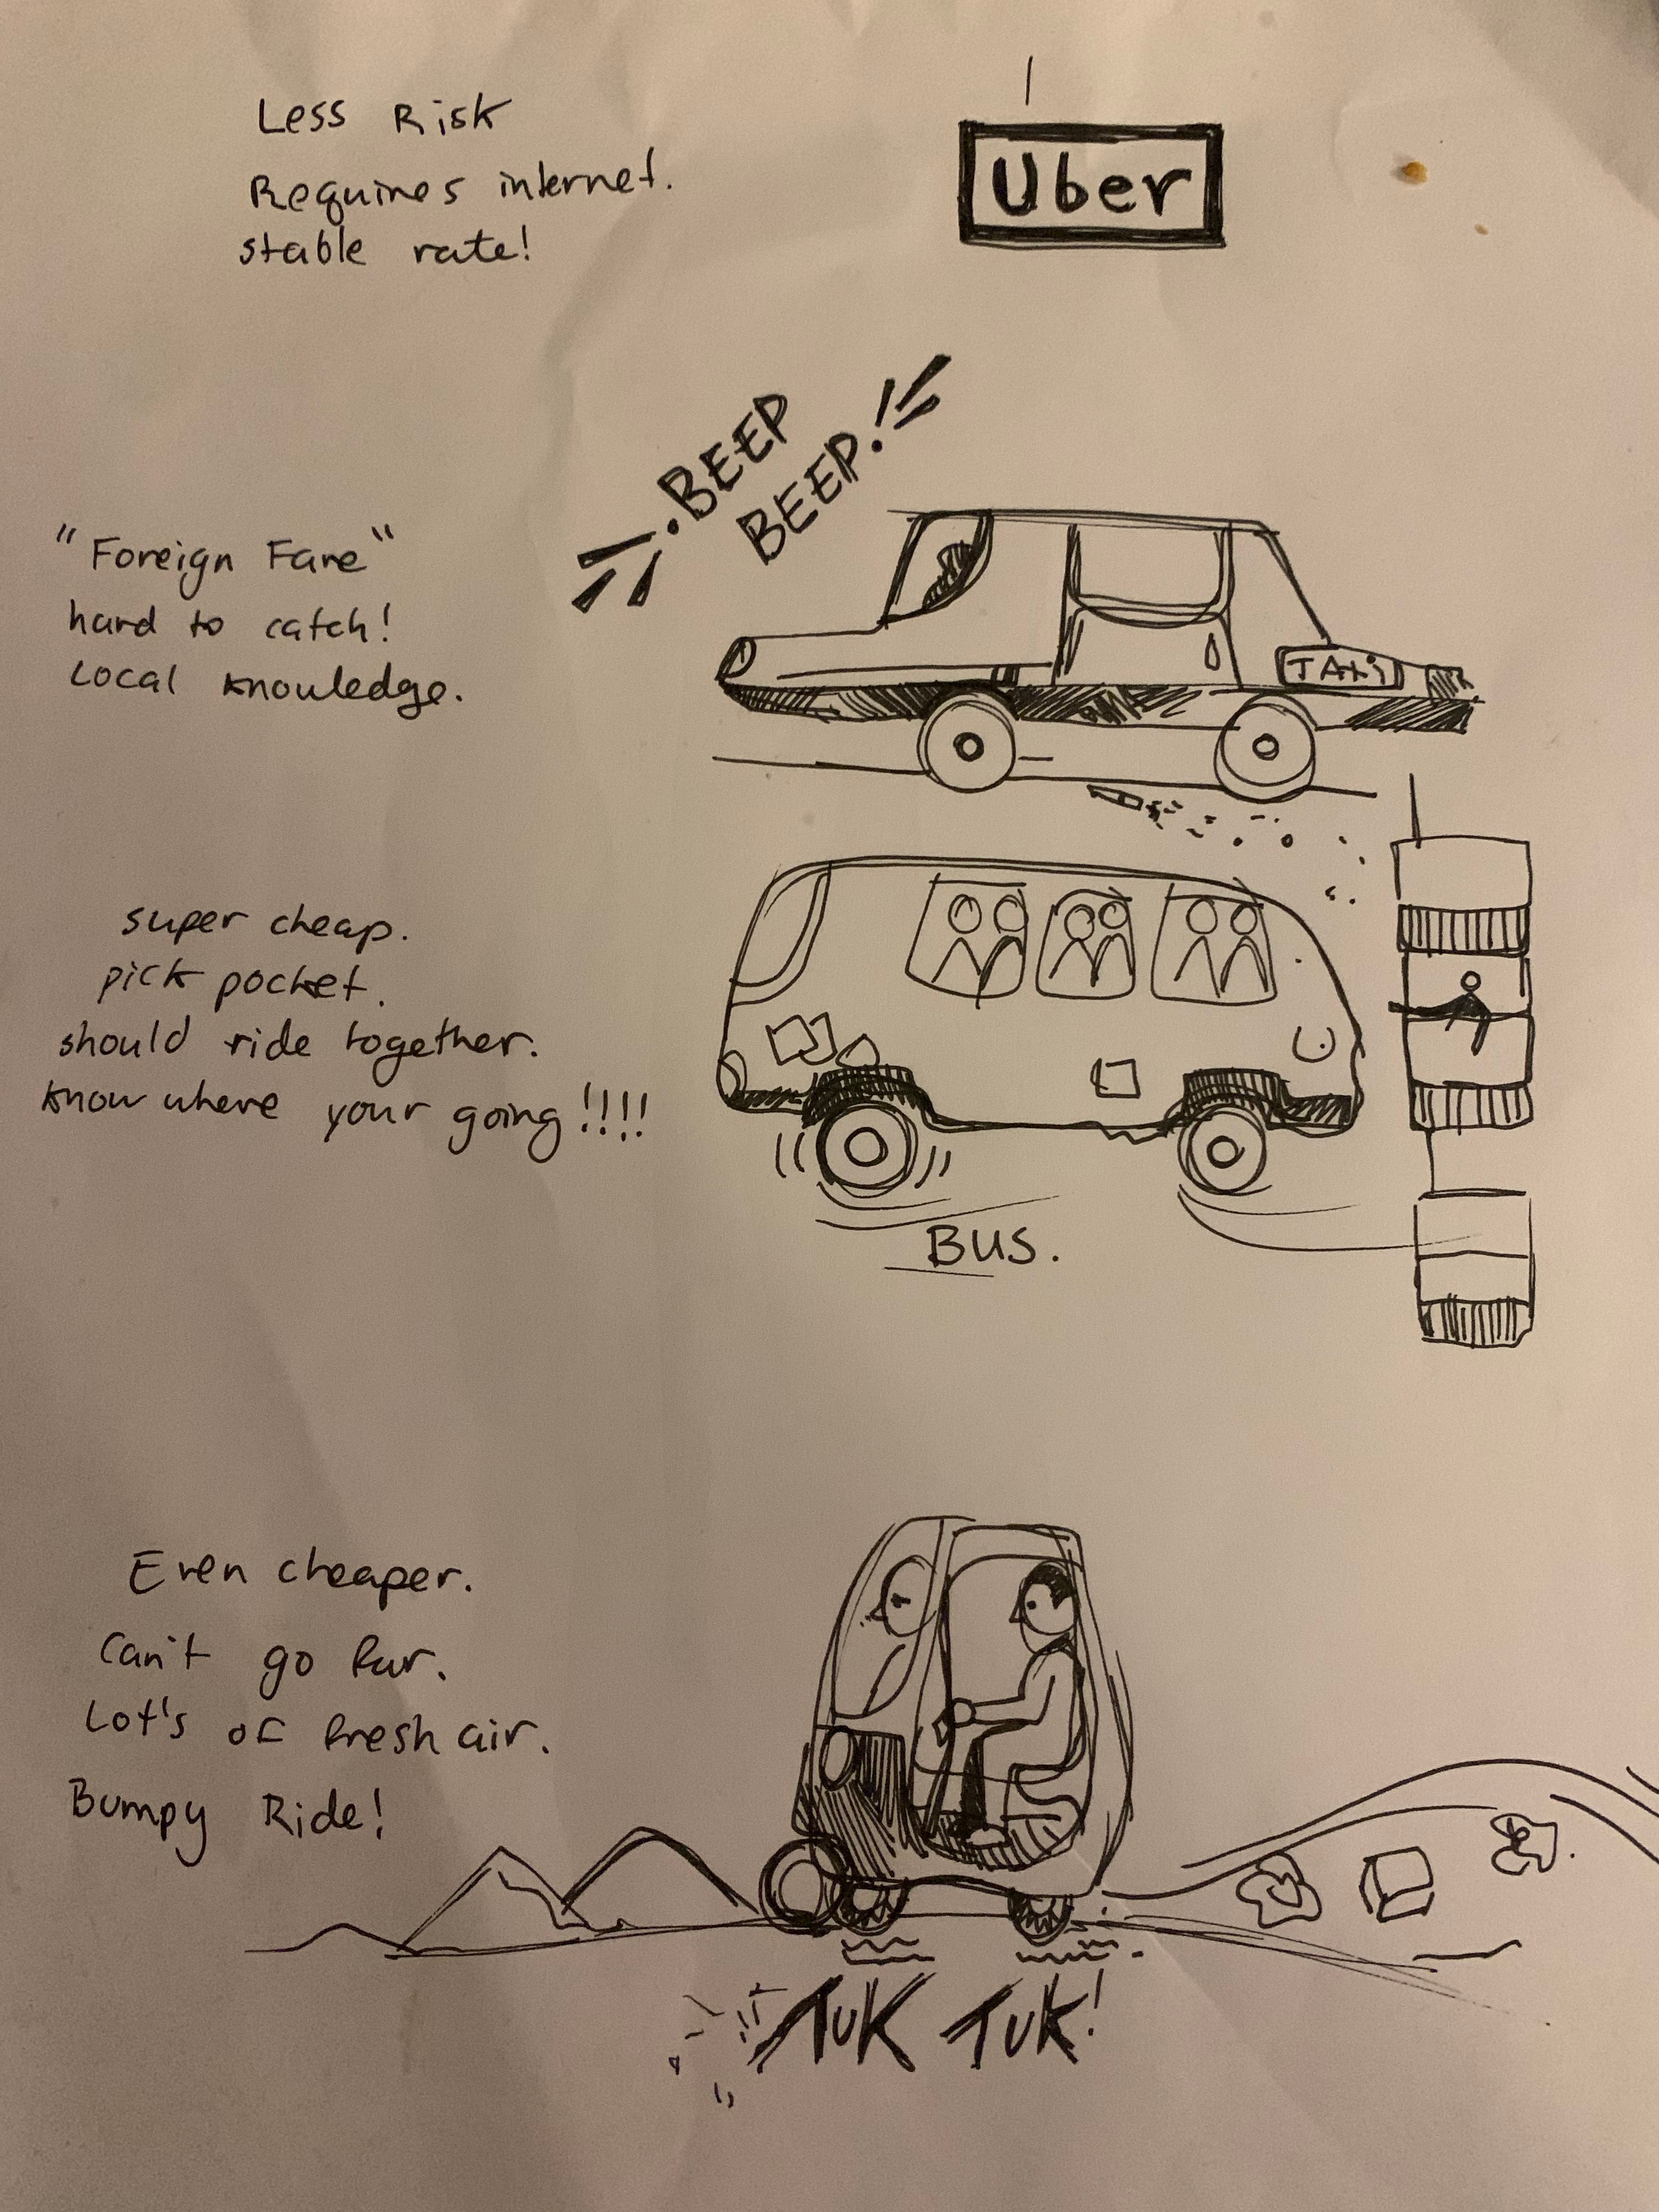 Less Risk
Requires internet.
stable rate!
Uber
BEEP
BEEP!
"Foreign Fare"
hard to catch!
Local knowledge.
TAXi
super cheap.
pick pocket.
should ride together.
know where your going!!!!
BUS.
Even cheaper.
Can't go far.
Lot's of fresh air.
Bumpy Ride!
TUK TUK!